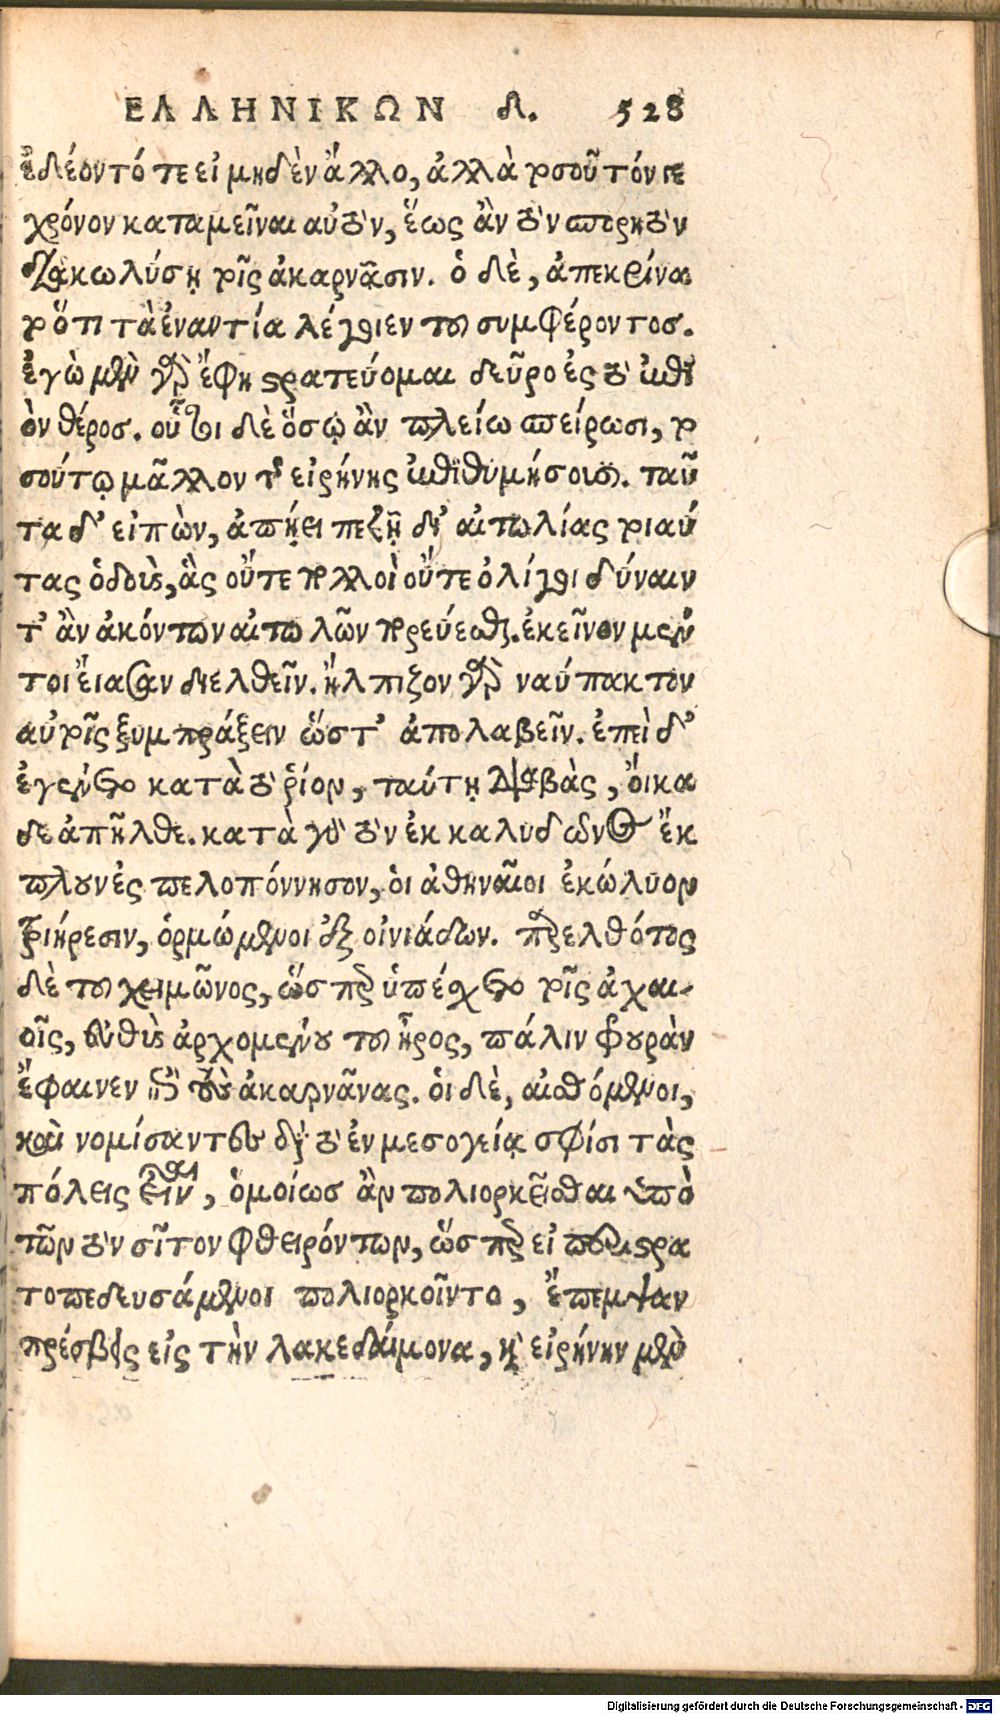 ΕΛΛΗΝΙΚΩΝ δ. 528
ἐδέοντό τε εἰ μηδὲν ἄλλο, ἀλλὰ τοσοῦτόν γε
χρόνον καταμεῖναι αὐτὸν, ἕως ἂν τὸν σπορητὸν
διακωλύσῃ τοῖς ἀκαρνᾶσιν. ὁ δὲ, ἀπεκρίνα
το ὅτι τὰ ἐναντία λέγοιεν τοῦ συμφέροντος.
ἐγὼ μὲν γὰρ ἔφη στρατεύομαι δεῦρο ἐς τὸ ἐπὶ
ὸν θέρος. οὗτοι δὲ ὅσῳ ἂν πλείω σπείρωσι, το
σούτῳ μᾶλλον τῆς εἰρήνης ἐπιθυμήσουσι. ταῦ
τα δ' εἰπὼν, ἀπῄει πεζῇ δι' αἰτωλίας τοιαύ
τας ὁδοὺς, ἃς οὔτε πολλοὶ οὔτε ὀλίγοι δύναιν
τ' ἂν ἀκόντων αἰτωλῶν πορεύεσθαι. ἐκεῖνον μέν
τοι εἴασαν διελθεῖν. ἤλπιζον γὰρ ναύπακτον
αὐτοῖς ξυμπράξειν ὥστ' ἀπολαβεῖν. ἐπεὶ δ'
ἐγένετο κατὰ τὸ ῥίον, ταύτῃ διαβὰς, οἴκα
δε ἀπῆλθε. κατὰ γὰρ τὸν ἐκ καλυδῶνος ἔκ
πλουν ἐς πελοπόννησον, οἱ ἀθηναῖοι ἐκώλυον
τριήρεσιν, ὁρμώμενοι ἐξ οἰνιάδων. παρελθότος
δὲ τοῦ χειμῶνος, ὥσπερ ὑπέσχετο τοῖς ἀχαι-
οῖς, εὐθὺς ἀρχομένου τοῦ ἦρος, πάλιν φουρὰν
ἔφαινεν ἐπὶ τοὺς ἀκαρνᾶνας. οἱ δὲ, αἰσθόμενοι,
καὶ νομίσαντες διὰ τὸ ἐν μεσογείᾳ σφίσι τὰς
πόλεις εἶναι, ὁμοίως ἂν πολιορκεῖσθαι ὑπὸ
τῶν τὸν σῖτον φθειρόντων, ὥσπερ εἰ περιστρα
τοπεδευσάμενοι πολιορκοῖντο, ἔπεμψαν
πρέσβεις εἰς τὴν λακεδαίμονα, καὶ εἰρήνην μὲν
Digitalisierung gefördert durch die Deutsche Forschungsgemeinschaft - DFG